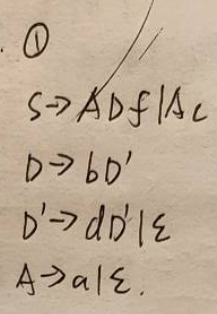 ①
S→ADf|Ac
D→bD'
D'→dD'|ε
A→a|ε.